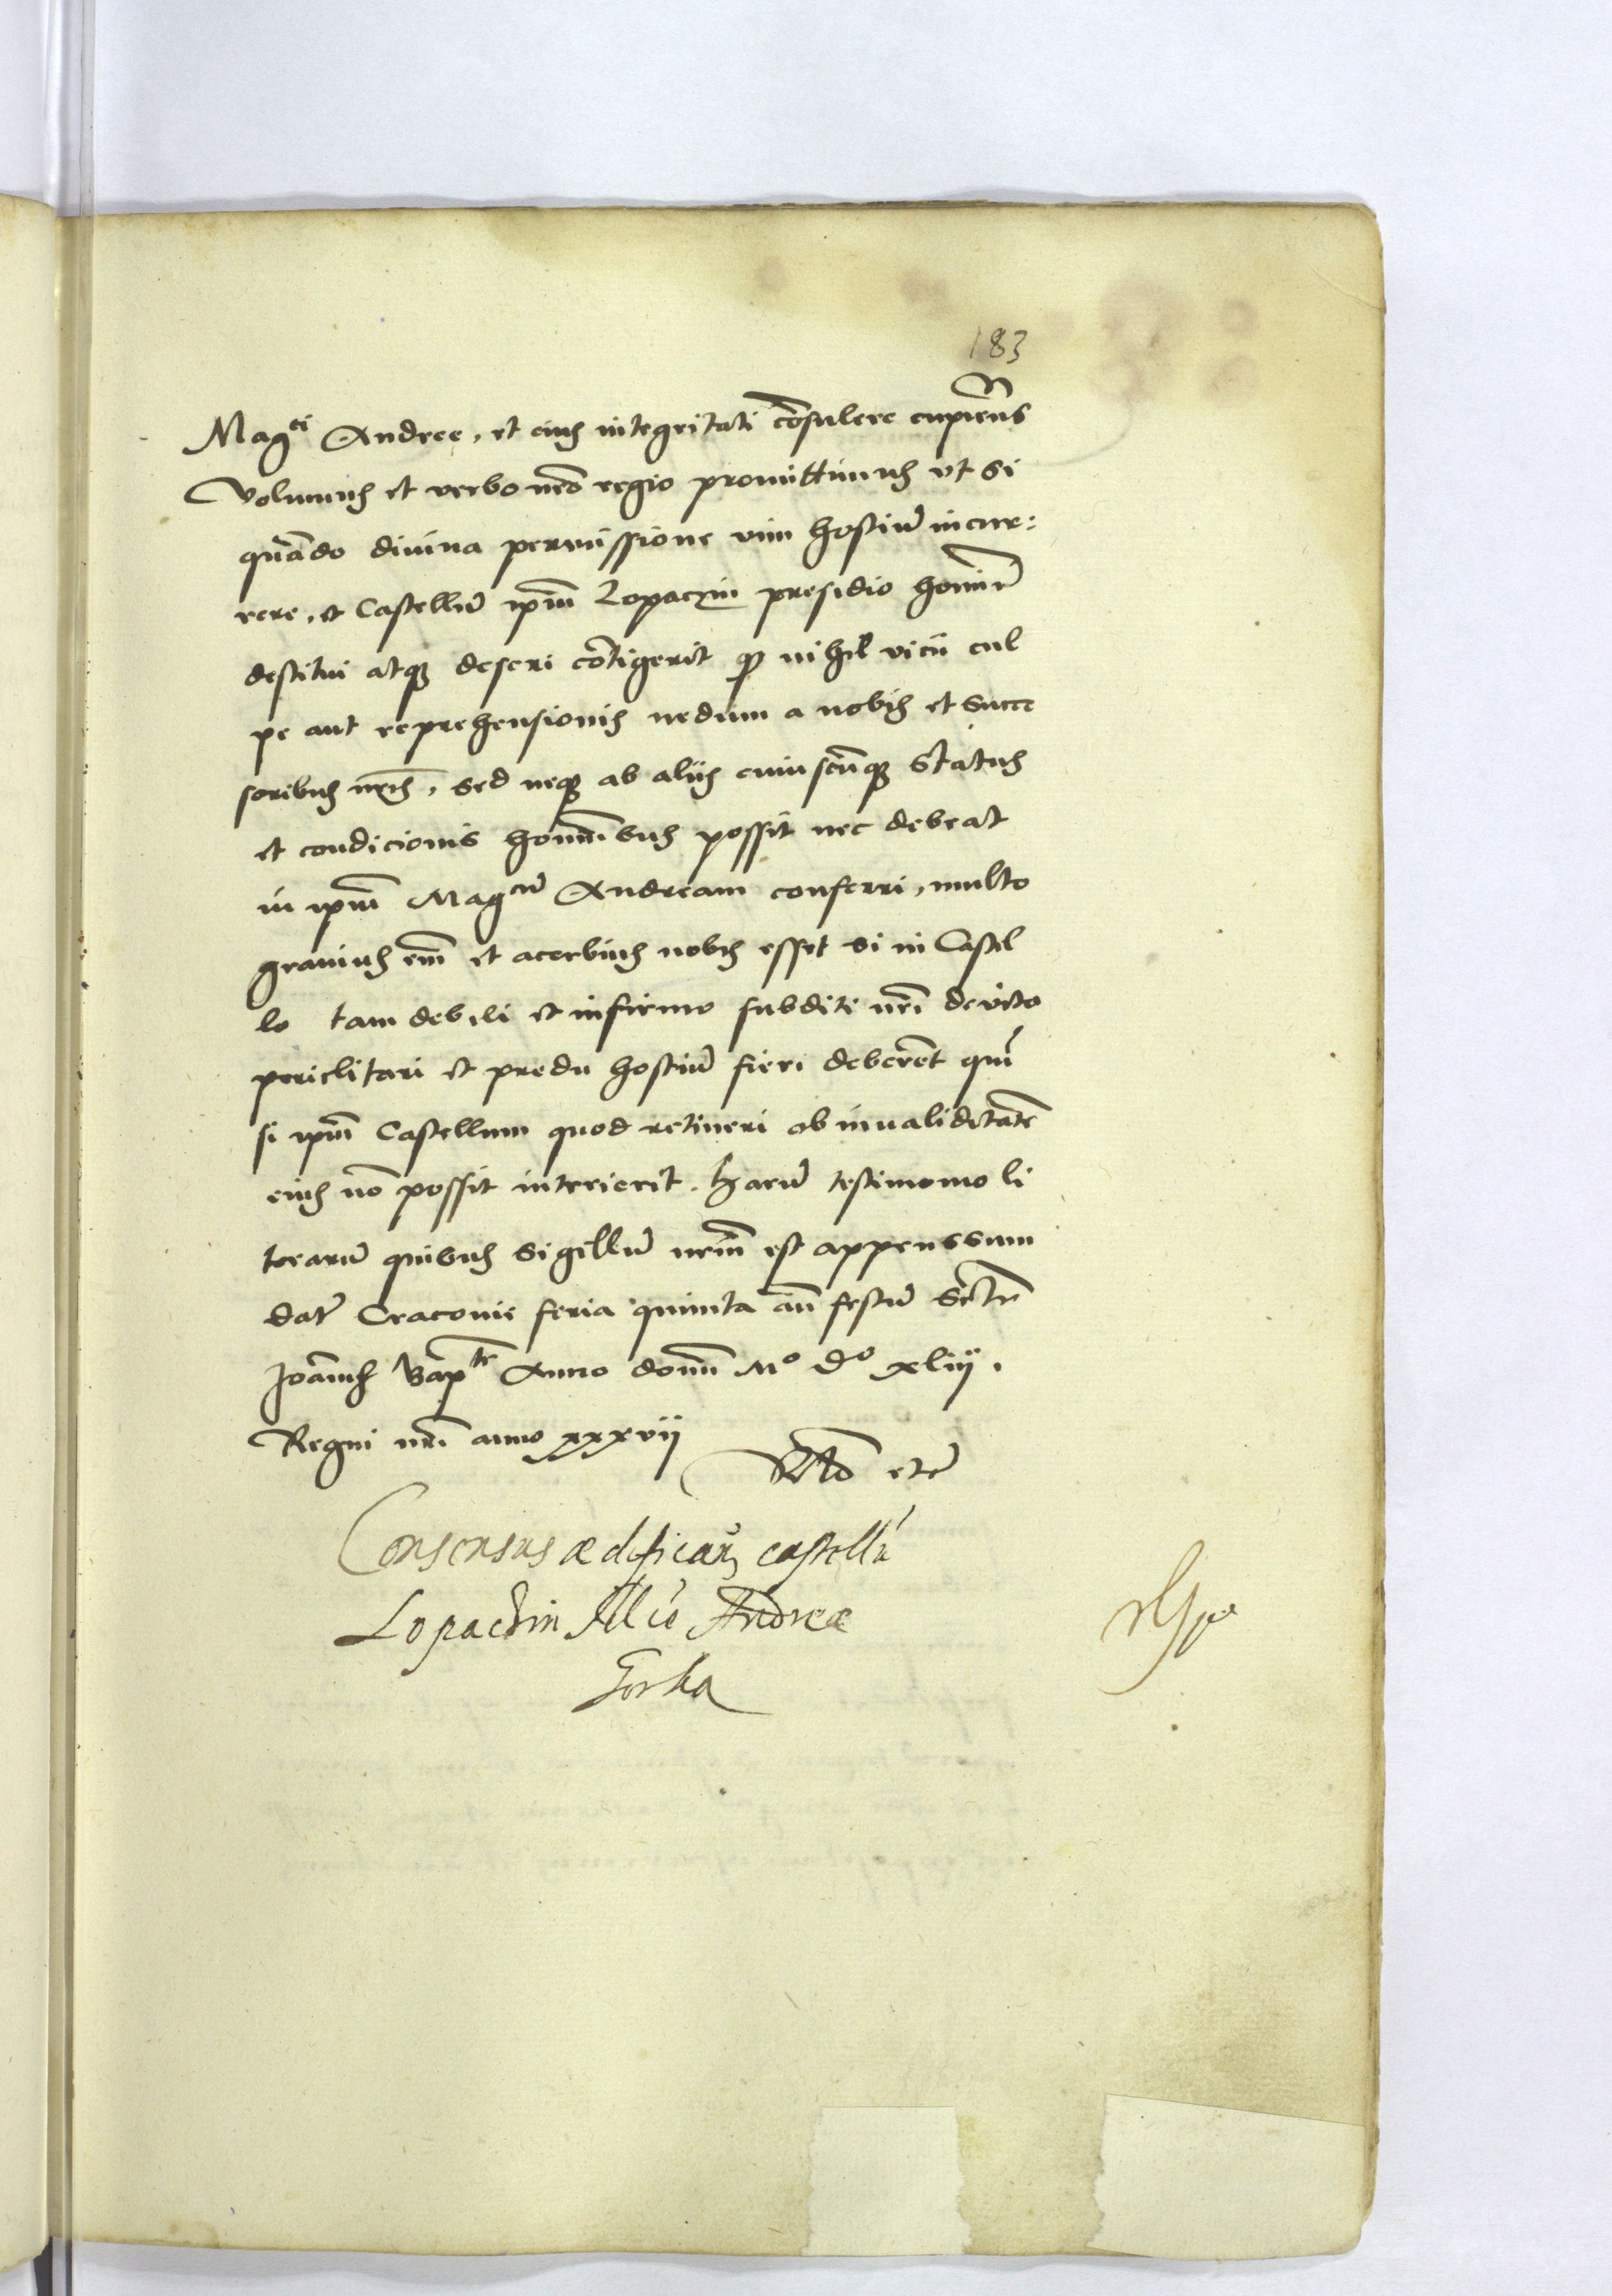 183
Mag^ci Andree, et eius integritati co͞sulere cupie͞ns
Volumus et verbo n͞ro regio promittimus vt si
qua͞do diuina permissione vim hostiu͞ incur:
rere, et Castellu͞ ip͞m Lopaczin presidio homi͞nu͞
destitui atq3 deseri co͞tigerit q͞ nihil vicii cul
pe aut reprehensionis nedum a nobis et Succe
soribus n͞ris, sed neq3 ab alijs cuiuscu͞q3 Status
et condicionis homi͞ibus possit nec debeat
in ip͞m Mag^cu͞ Andream conferri, multo
grauius em͞ et acerbius nobis esset si in Castel
lo tam debili et infirmo subditi n͞ri de vita
periclitari et preda hostiu͞ fieri debere͞t qua͞
si ip͞m Castellum quod retineri ob inualidita͞te͞
eius no͞ possit interierit. Haru͞ testimonio li
teraru͞ quibus Sigillu͞ n͞rm est appenssum
dat͞ Cracouie feria quinta an͞ festu͞ S͞cti
Joa͞nis Bap^te Anno dom͞ M^o d^o xliij.
Regni n͞ri anno xxxvij
etc͞
Consensus ædifican͞ castellu͞
Lopaczin M͞co Andreæ
Gorka